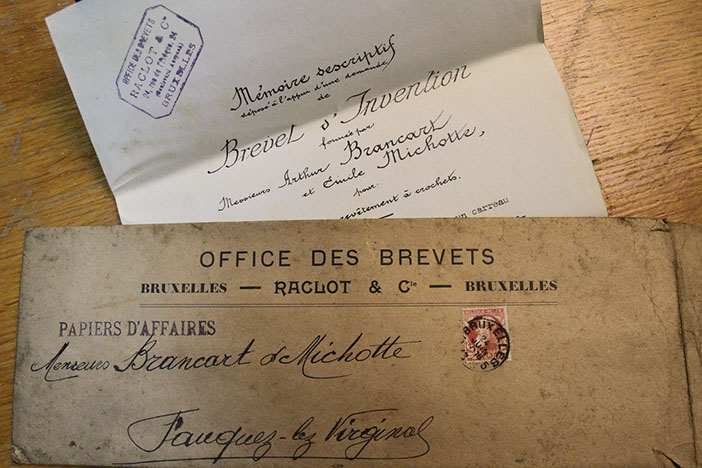 OFFICE DES BREVETS
RACLOT & Cie
BRUXELLES
Mémoire descriptif
déposé à l'appui d'une demande
de
Brevet d'Invention
formée par
Messieurs Arthur Brancart
et Emile Michotte,
pour
revêtement à crochets.
un carreau
OFFICE DES BREVETS
BRUXELLES — RACLOT & Cie — BRUXELLES
PAPIERS D'AFFAIRES
Messieurs Brancart & Michotte
BRUXELLES
Fauquez-lez Virginal